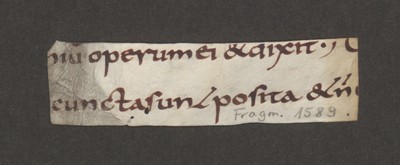 operum ei & dixit.
cunctasunt posita & n
Fragm. 1589.